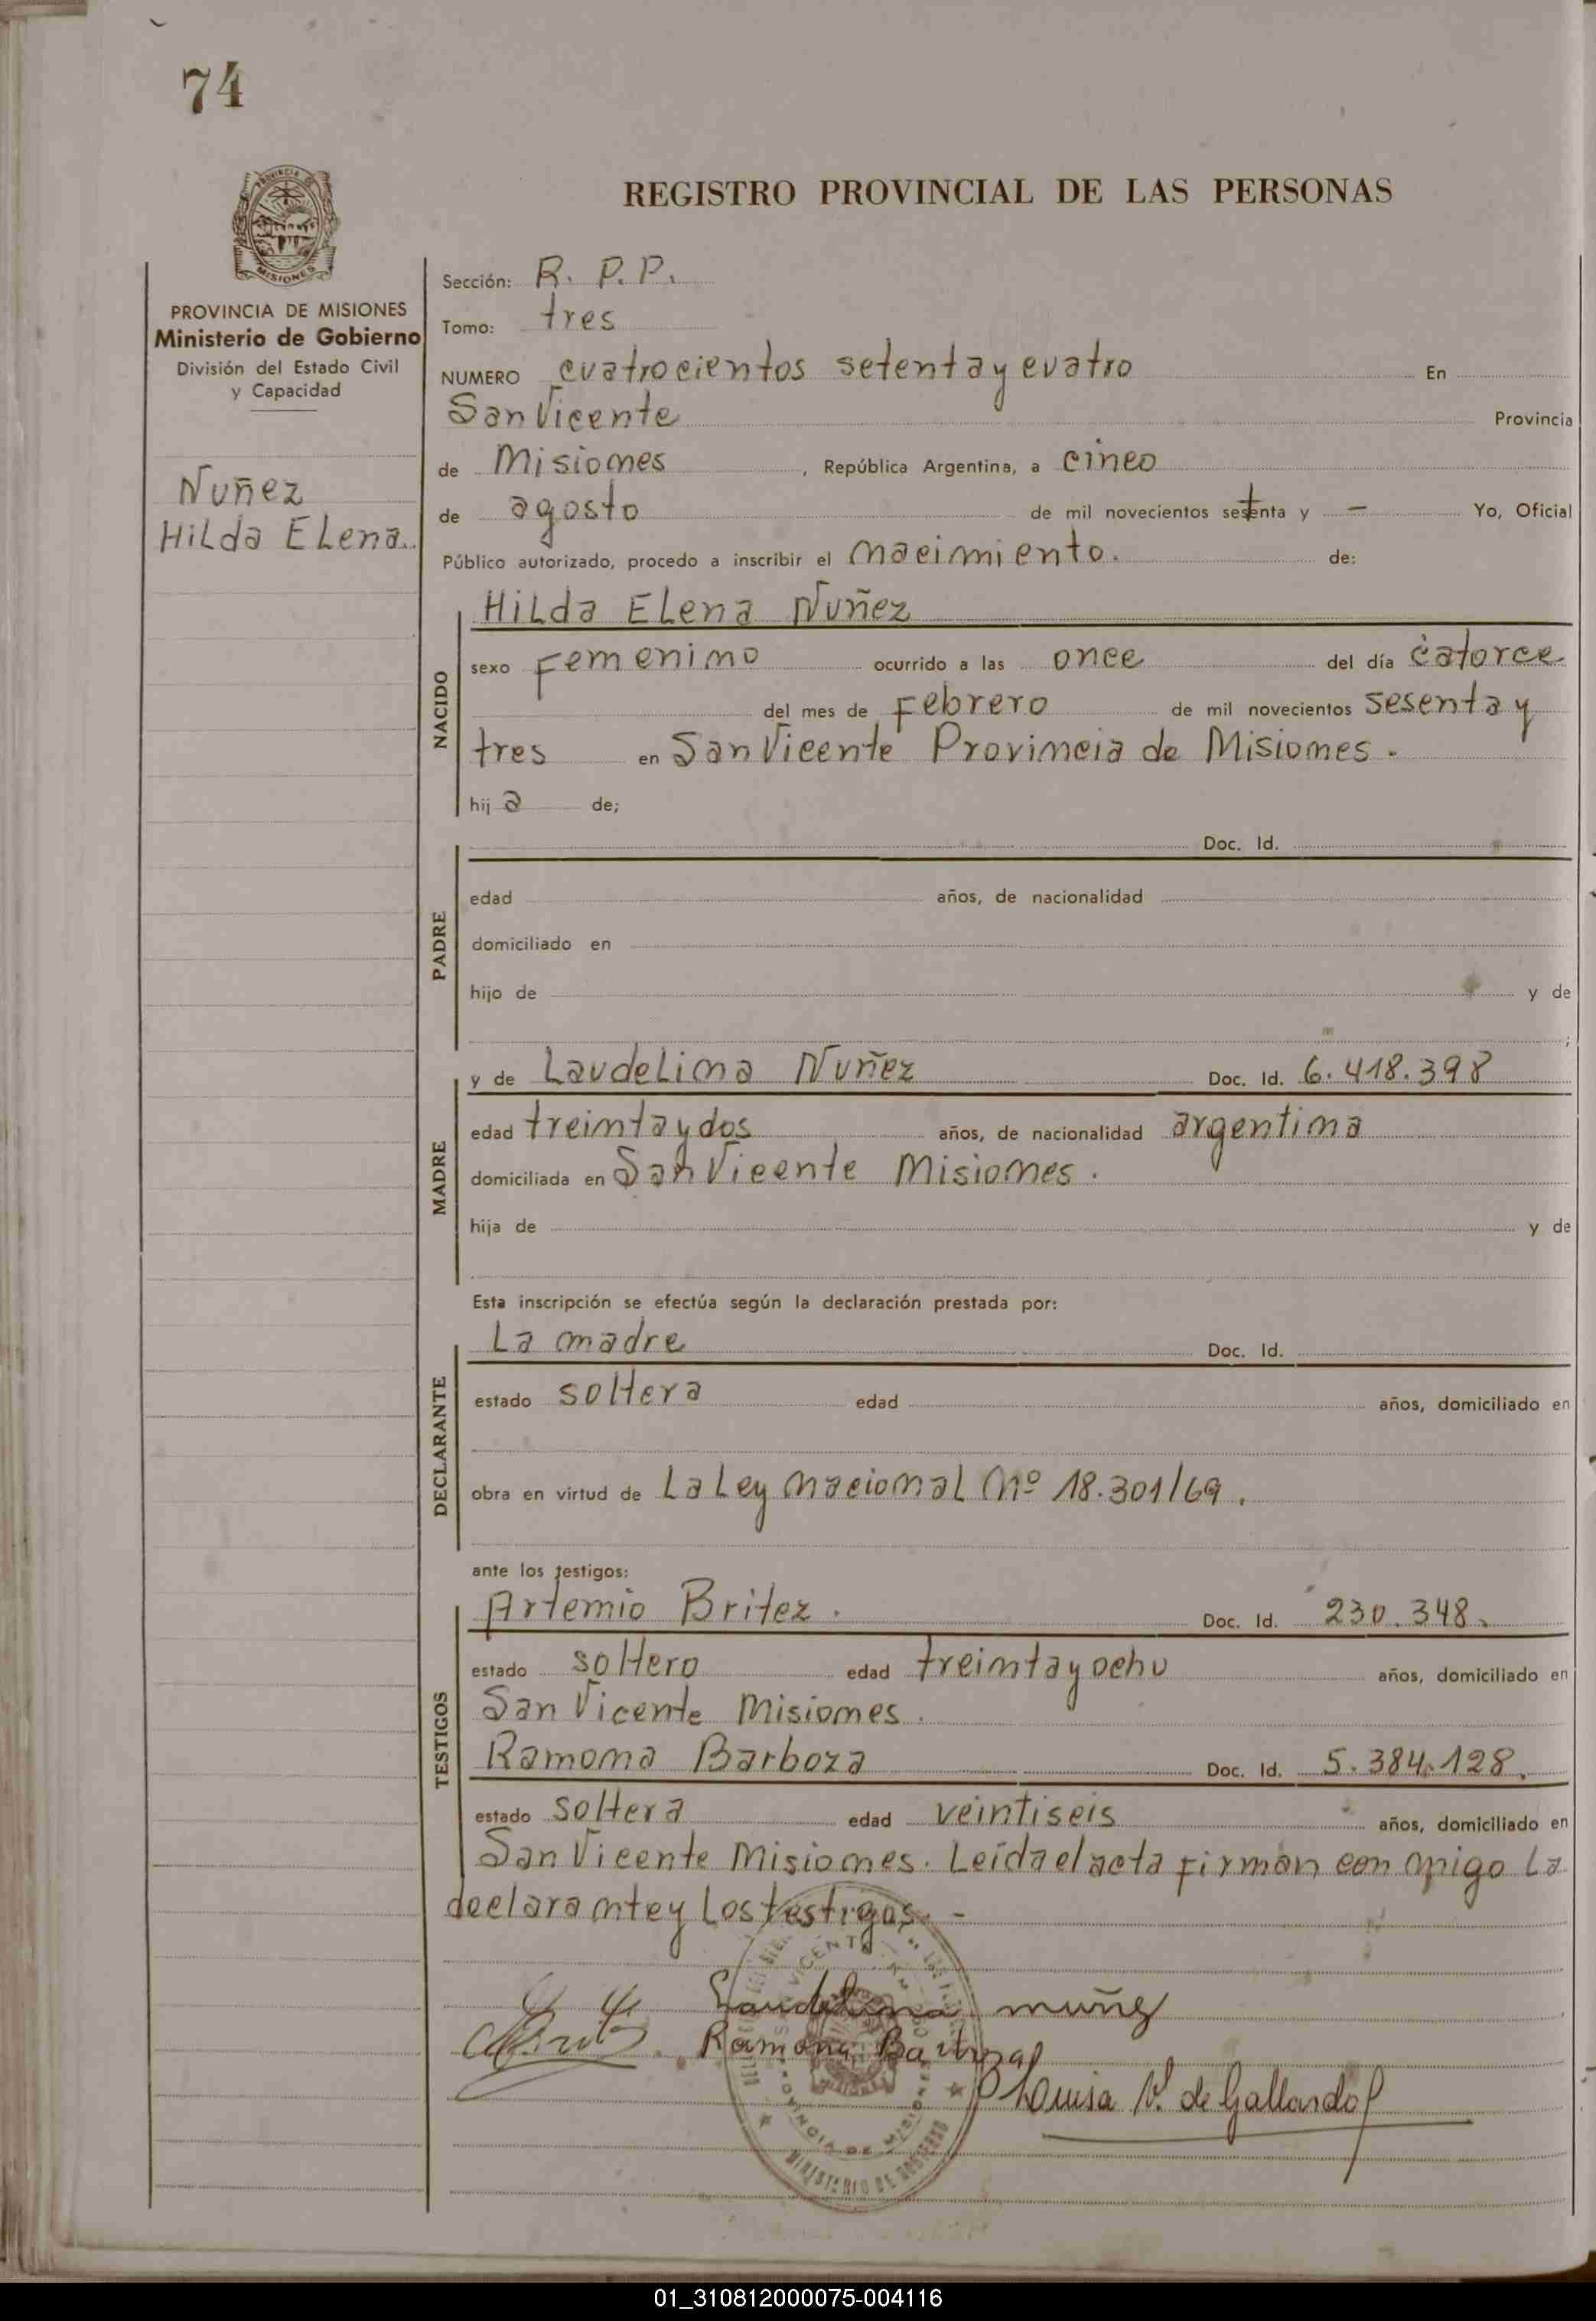 74
PROVINCIA DE MISIONES
REGISTRO PROVINCIAL DE LAS PERSONAS
PROVINCIA DE MISIONES
Ministerio de Gobierno
División del Estado Civil
y Capacidad
Nuñez
Hilda Elena.
Sección: R. P. P.
Tomo: tres
NUMERO cuatrocientos setenta y cuatro En
San Vicente Provincia
de Misiones, República Argentina, a cinco
de agosto de mil novecientos setenta y - Yo, Oficial
Público autorizado, procedo a inscribir el nacimiento. de:
NACIDO
Hilda Elena Nuñez
sexo Femenino ocurrido a las once del día catorce
del mes de Febrero de mil novecientos sesenta y
tres en San Vicente Provincia de Misiones.
hija de;
PADRE
Doc. Id.
edad años, de nacionalidad
domiciliado en
hijo de y de
;
MADRE
y de Laudelina Nuñez Doc. Id. 6.418.398
edad treinta y dos años, de nacionalidad argentina
domiciliada en San Vicente Misiones.
hija de y de
Esta inscripción se efectúa según la declaración prestada por:
DECLARANTE
La madre Doc. Id.
estado soltera edad años, domiciliado en
obra en virtud de La Ley nacional Nº 18.301/69.
ante los testigos:
TESTIGOS
Artemio Britez. Doc. Id. 230.348.
estado soltero edad treinta y ocho años, domiciliado en
San Vicente Misiones.
Ramona Barboza Doc. Id. 5.384.128.
estado soltera edad veintiseis años, domiciliado en
San Vicente Misiones. Leída el acta firman con migo la
declarante y los testigos. -
Laudelina nuñez
Ramona Barboza
Luisa V. de Gallardo
PROVINCIA DE MISIONES
MINISTERIO DE GOBIERNO
01_310812000075-004116